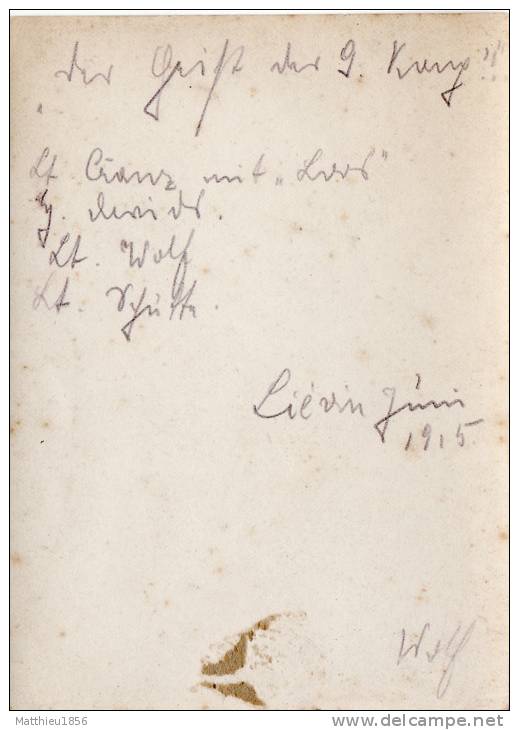 "Der Geist der 9. Komp."
Lt. Cranz mit "Loos"
Lt. Wolf
Lt. Schütte.
Liévin Juni
1915.
Wolf
Matthieu1856
www.delcampe.net